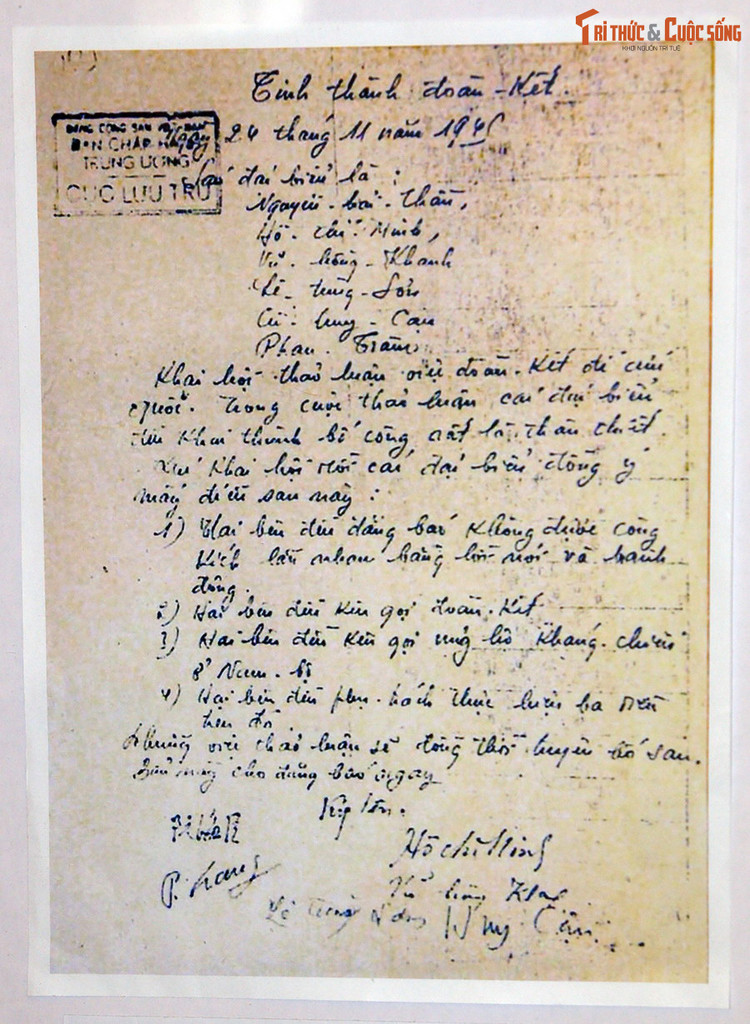 TRI THỨC & CUỘC SỐNG
KHƠI NGUỒN TRI THỨC
Tinh thành đoàn-Kết.
ĐẢNG CỘNG SẢN VIỆT NAM
Ngày 24 tháng 11 năm 1945
BAN CHẤP HÀNH
TRUNG ƯƠNG
CỤC LƯU TRỮ
đại biểu là:
Nguyễn-hải-Thần,
Hồ-chí-Minh,
Vũ-hồng-Khanh
Lê-tùng-Sơn
Cù-huy-Cận
Phan-Trâm
Khai hội thảo luận việc đoàn-Kết để cứu
quốc. Trong cuộc thảo luận các đại biểu
đều Khai thành bố công rất là thân thiết.
Sau Khai hội rồi các đại biểu đồng ý
mấy điều sau này:
1) Hai bên đều đăng báo Không được công
Kích lẫn nhau bằng lời nói và hành
động.
2) Hai bên đều Kêu gọi đoàn-Kết
3) Hai bên đều Kêu gọi ủng hộ Kháng-chiến
ở Nam-bộ
4) Hai bên đều phụ-trách thực hiện ba điều
trên đó
Những việc thảo luận sẽ đồng thời tuyên bố sau.
Bản này cho đăng báo ngay
Ký tên.
Hồ chí Minh
P. Trâm
Vũ hồng Khanh
Lê Tùng Sơn Huy Cận